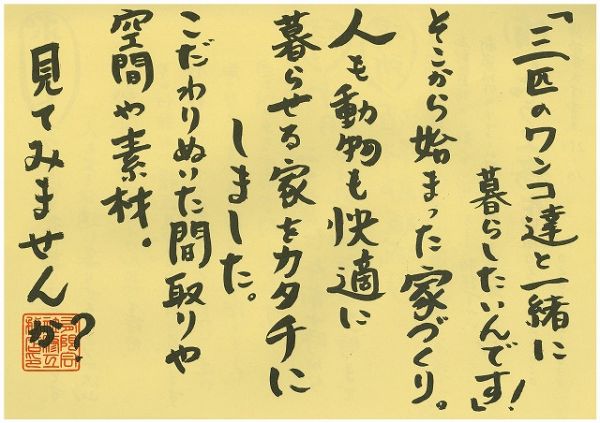 「三匹のワンコ達と一緒に
暮らしたいんです」!
そこから始まった家づくり。
人も動物も快適に
暮らせる家をカタチに
しました。
こだわりぬいた間取りや
空間や素材。
見てみませんか?